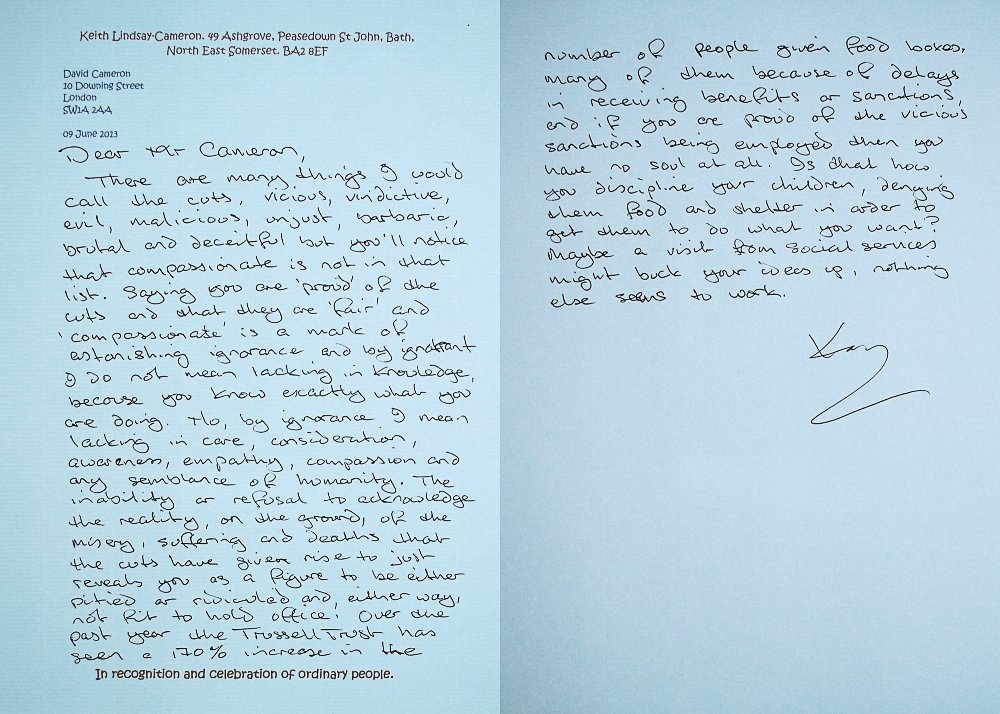 Keith Lindsay-Cameron. 49 Ashgrove, Peasedown St John, Bath,
North East Somerset. BA2 8EF
David Cameron
10 Downing Street
London
SW1A 2AA
09 June 2013
Dear Mr Cameron,
There are many things I would
call the cuts, vicious, vindictive,
evil, malicious, unjust, barbaric,
brutal and deceitful but you'll notice
that compassionate is not in that
list. Saying you are 'proud' of the
cuts and that they are 'fair' and
'compassionate' is a mark of
astonishing ignorance and by ignorant
I do not mean lacking in knowledge,
because you know exactly what you
are doing. No, by ignorance I mean
lacking in care, consideration,
awareness, empathy, compassion and
any semblance of humanity. The
inability or refusal to acknowledge
the reality, on the ground, of the
misery, suffering and deaths that
the cuts have given rise to just
reveals you as a figure to be either
pitied or ridiculed and, either way,
not fit to hold office. Over the
past year the Trussell Trust has
seen a 170% increase in the
In recognition and celebration of ordinary people.
number of people given food boxes,
many of them because of delays
in receiving benefits or sanctions,
and if you are proud of the vicious
sanctions being employed then you
have no soul at all. Is that how
you discipline your children, denying
them food and shelter in order to
get them to do what you want?
Maybe a visit from social services
might buck your ideas up, nothing
else seems to work.